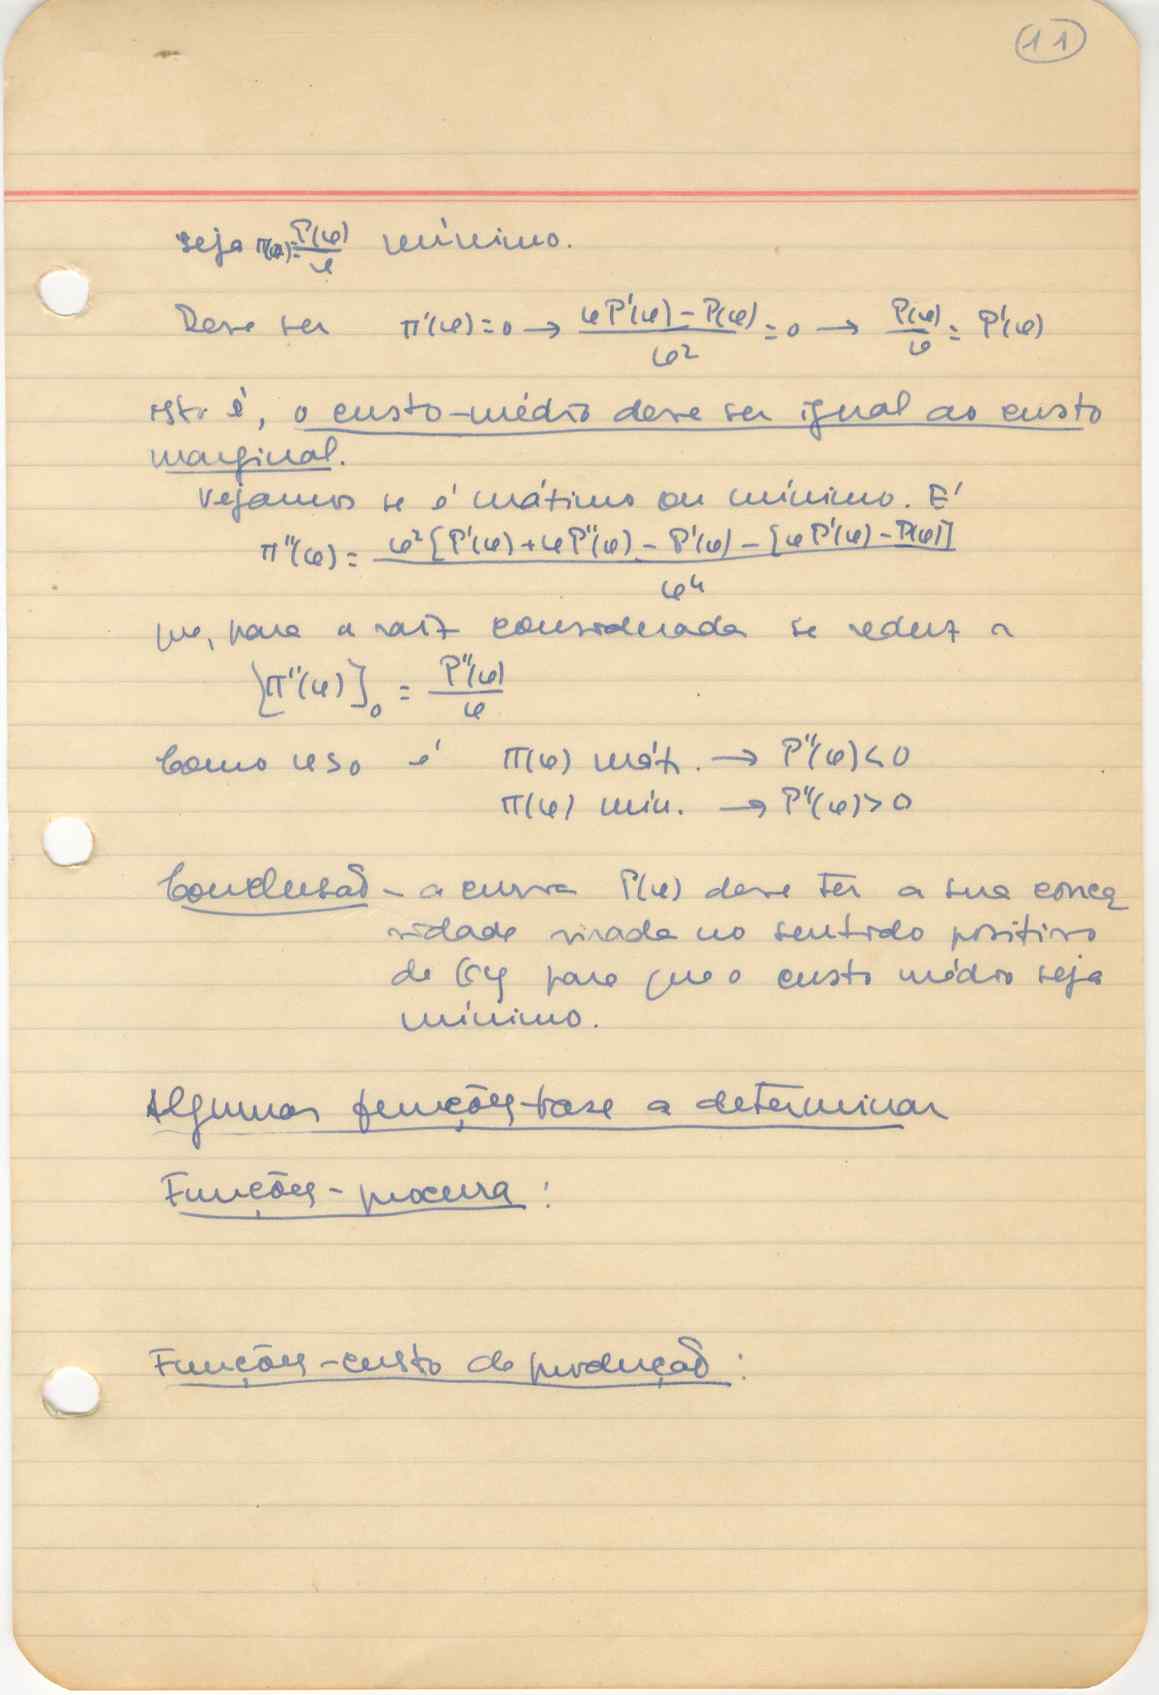 11
seja π(φ)=P(φ)/φ mínimo.
Deve ser π'(φ)=0 → (φP'(φ) - P(φ))/φ² = 0 → P(φ)/φ = P'(φ)
isto é, o custo-médio deve ser igual ao custo
marginal.
Vejamos se é máximo ou mínimo. E'
π''(φ) = (φ²[P'(φ)+φP''(φ) - P'(φ) - [φP'(φ) - P(φ)])/φ⁴
que, para a raiz considerada se reduz a
[π''(φ)]₀ = P''(φ)/φ
Como isso é π(φ) máx. → P''(φ)<0
π(φ) mín. → P''(φ)>0
Conclusão - a curva P(φ) deve ter a sua conca
vidade virada no sentido positivo
de Oy para que o custo médio seja
mínimo.
Algumas funções-base a determinar
Funções-procura:
Funções-custo de produção: